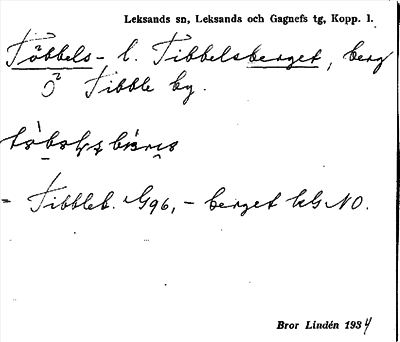 Leksands sn, Leksands och Gagnefs tg, Kopp. l.
Többels- l. Tibbelsberget, berg
Ö Tibble by.
= Tibbleb. G96, - berget kG NO.
Bror Lindén 1934